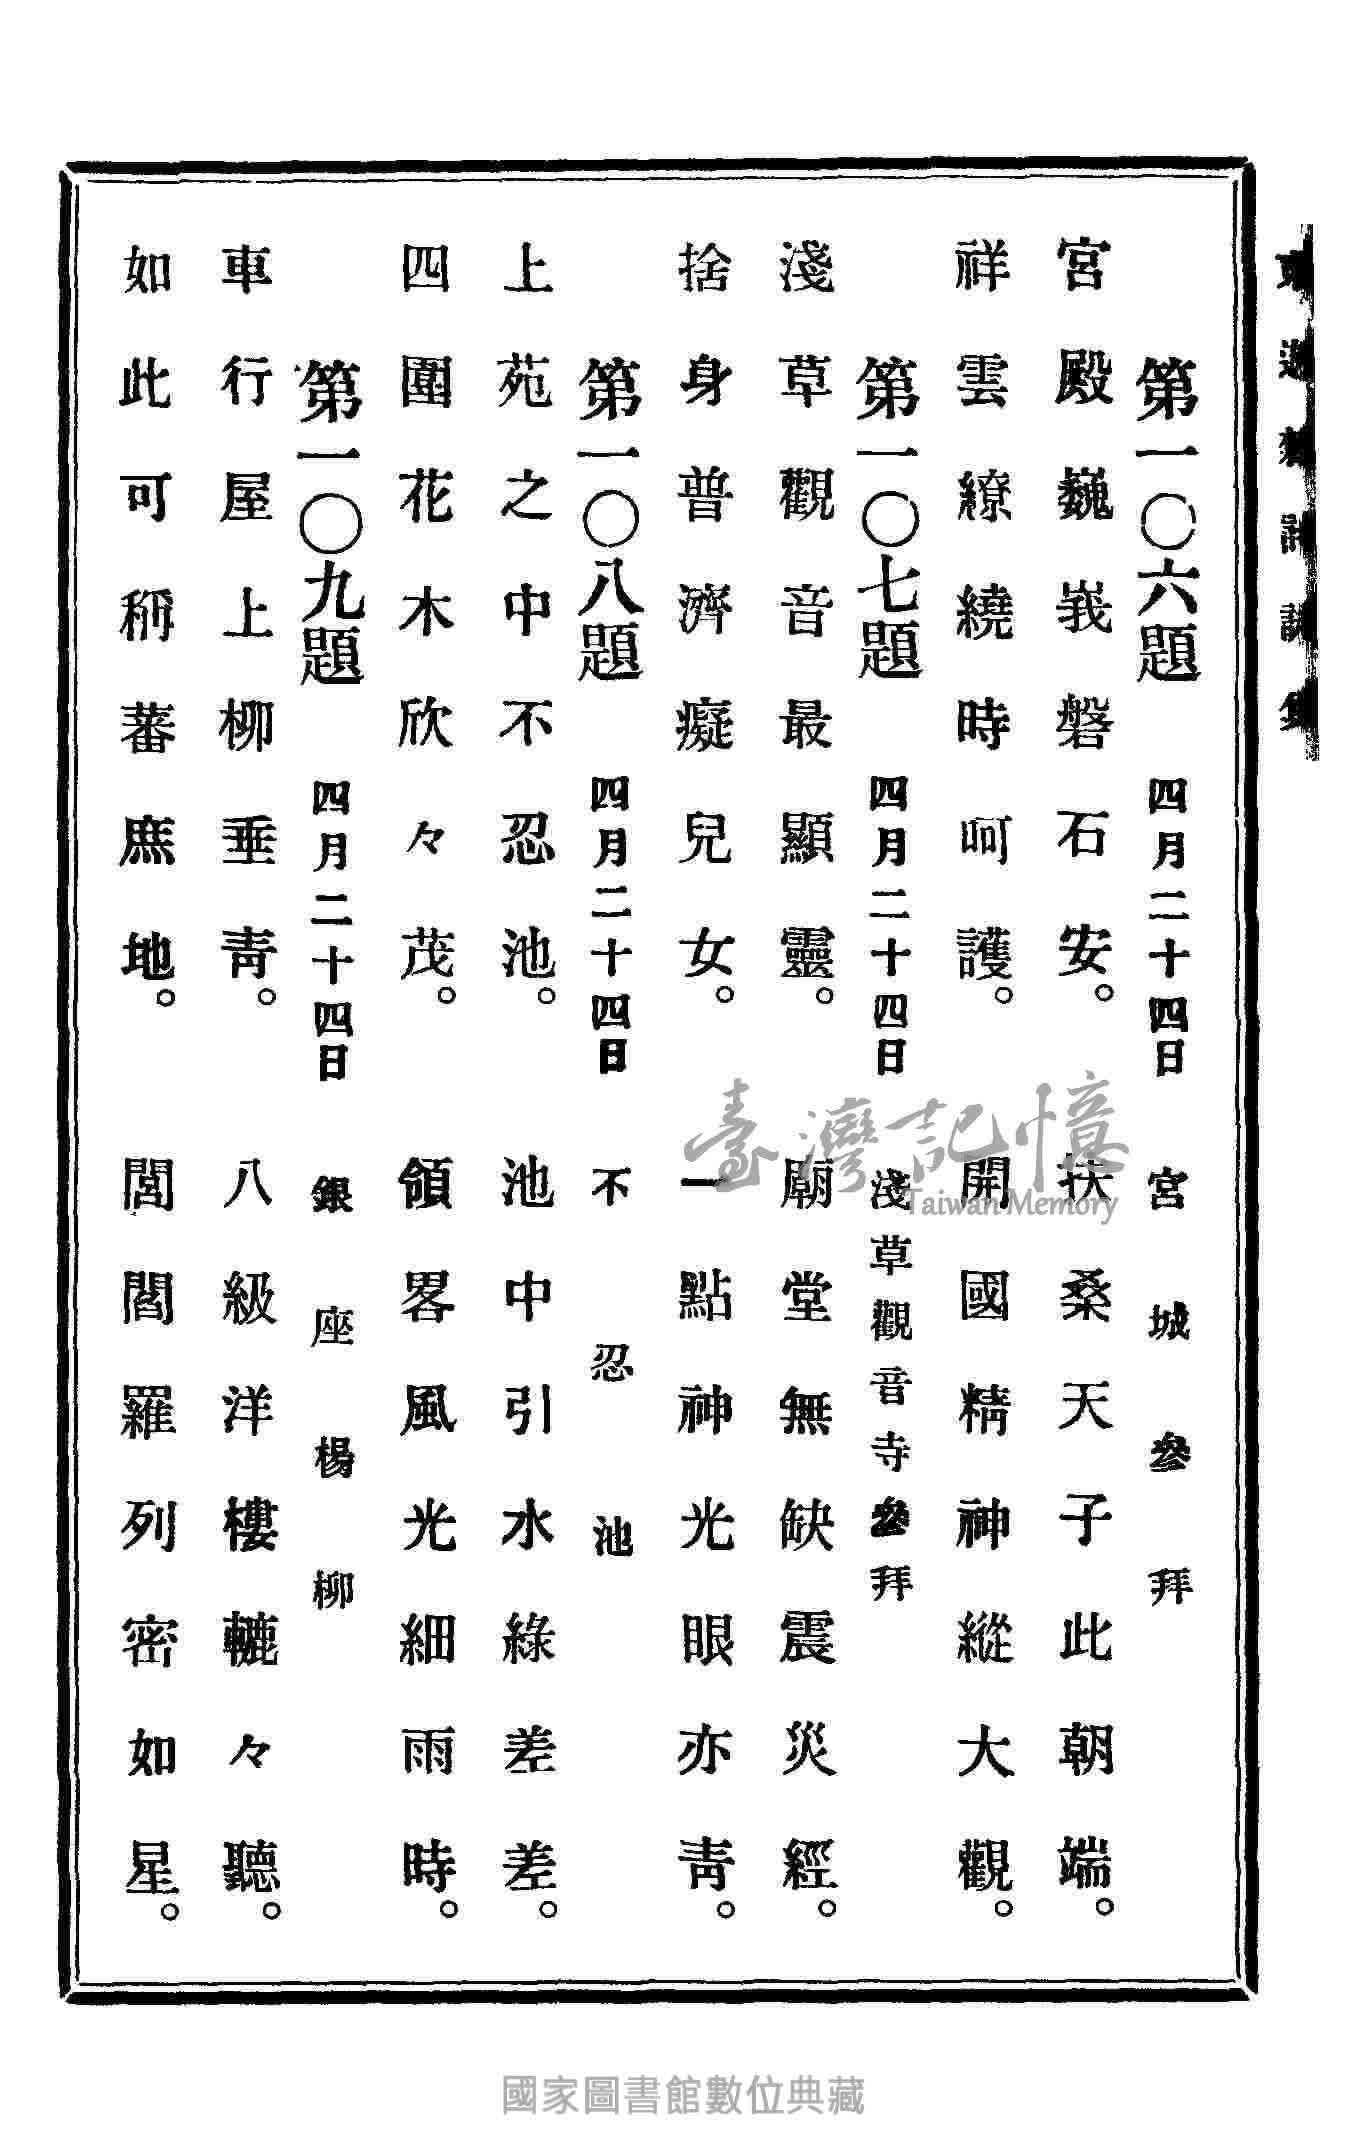 東遊雜詩謠集
第一〇六題 四月二十四日 宮城參拜
宮殿巍峩磐石安。 扶桑天子此朝端。
祥雲繚繞時呵護。 開國精神縱大觀。
第一〇七題 四月二十四日 淺草觀音寺參拜
淺草觀音最顯靈。 廟堂無缺震災經。
捨身普濟癡兒女。 一點神光眼亦靑。
第一〇八題 四月二十四日 不忍池
上苑之中不忍池。 池中引水綠差差。
四圍花木欣々茂。 領畧風光細雨時。
第一〇九題 四月二十四日 銀座楊柳
車行屋上柳垂靑。 八級洋樓轆々聽。
如此可稱蕃庶地。 閭閻羅列密如星。
臺灣記憶
Taiwan Memory
國家圖書館數位典藏